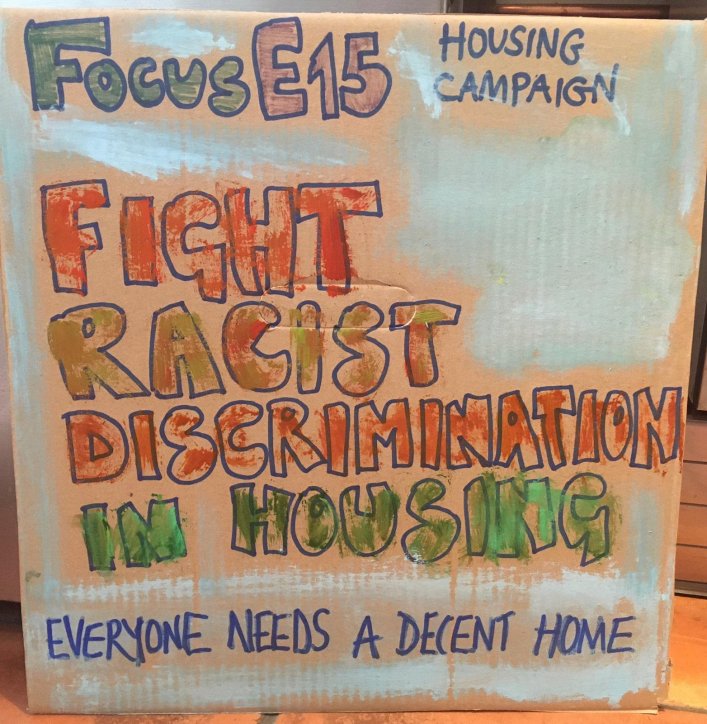 FOCUS E15
HOUSING
CAMPAIGN
FIGHT
RACIST
DISCRIMINATION
IN HOUSING
EVERYONE NEEDS A DECENT HOME